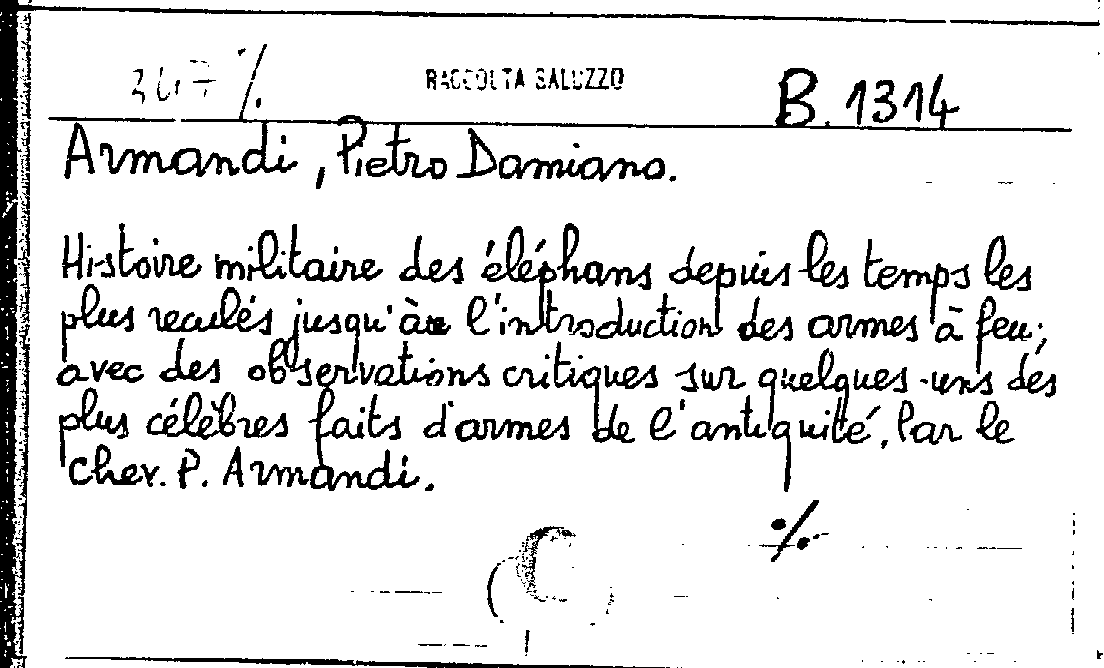 347 ./.
RACCOLTA SALUZZO
B. 1314
Armandi, Pietro Damiano.
Histoire militaire des éléphans depuis les temps les
plus reculés jusqu'à l'introduction des armes à feu;
avec des observations critiques sur quelques-uns des
plus célèbres faits d'armes de l'antiquité. Par le
chev. P. Armandi.
./.